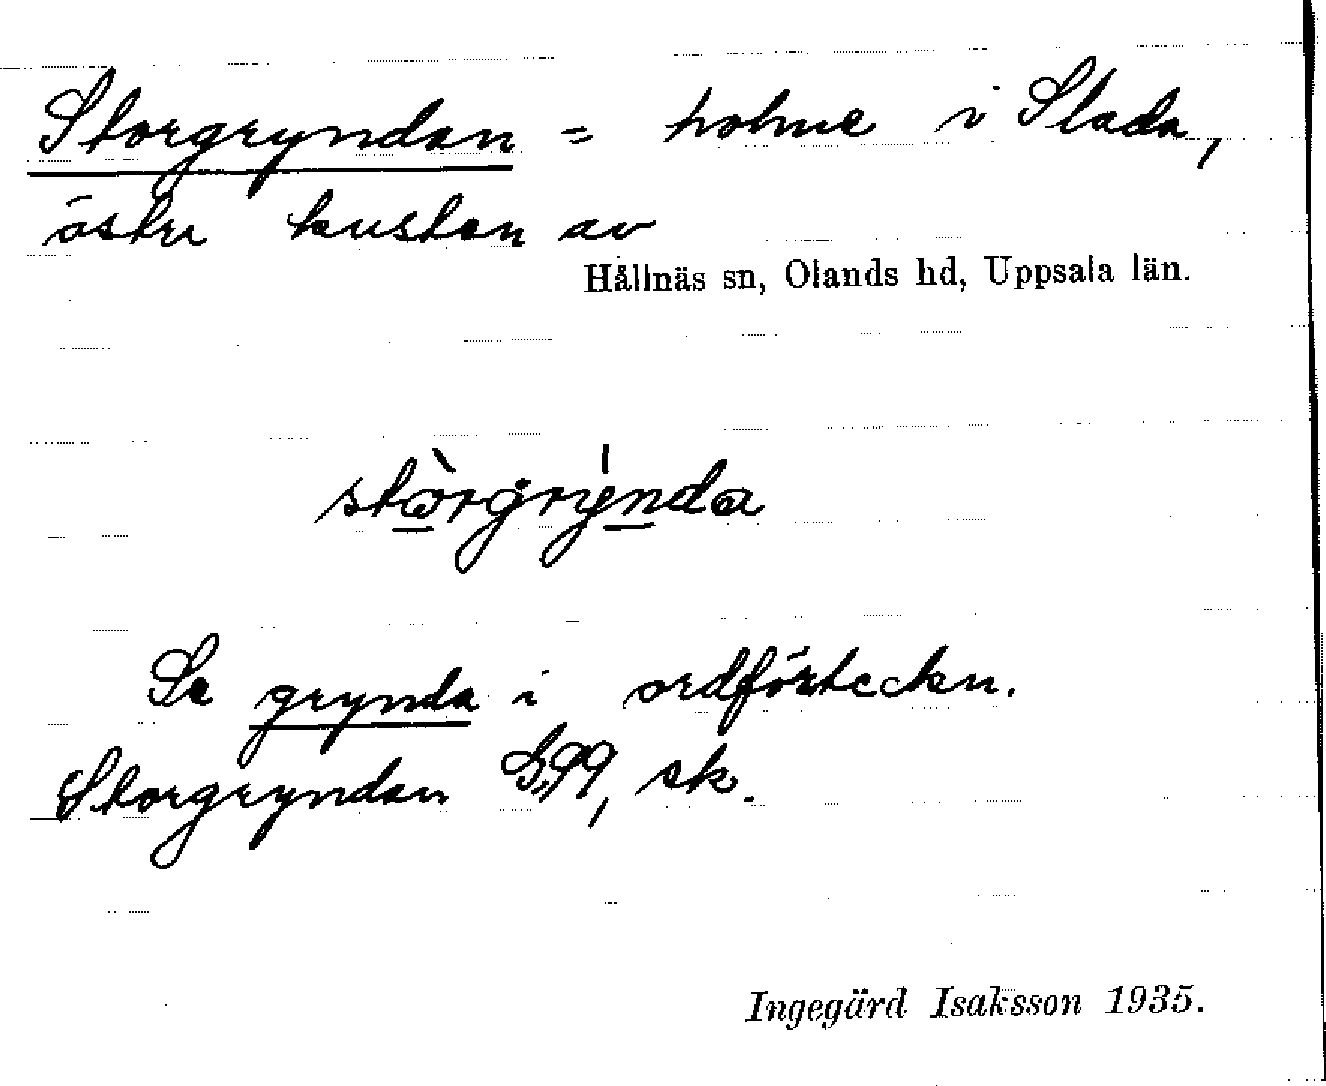 Storgryndan = holme i Slada,
östre kusten av
Hållnäs sn, Olands hd, Uppsala län.
stòrgrýnda
Se grynda i ordförteckn.
Storgryndan G.99, sk.
Ingegärd Isaksson 1935.